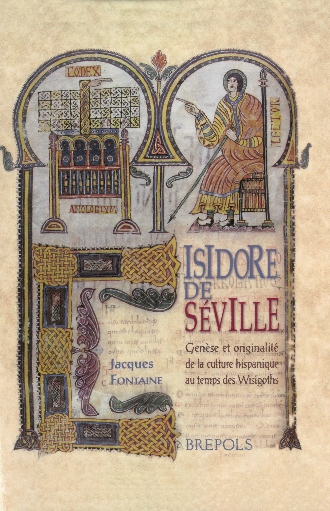 CODEX
LECTOR
ANOLOGIVM
ISIDORE
DE
SÉVILLE
Genèse et originalité
de la culture hispanique
au temps des Wisigoths
Jacques
FONTAINE
BREPOLS